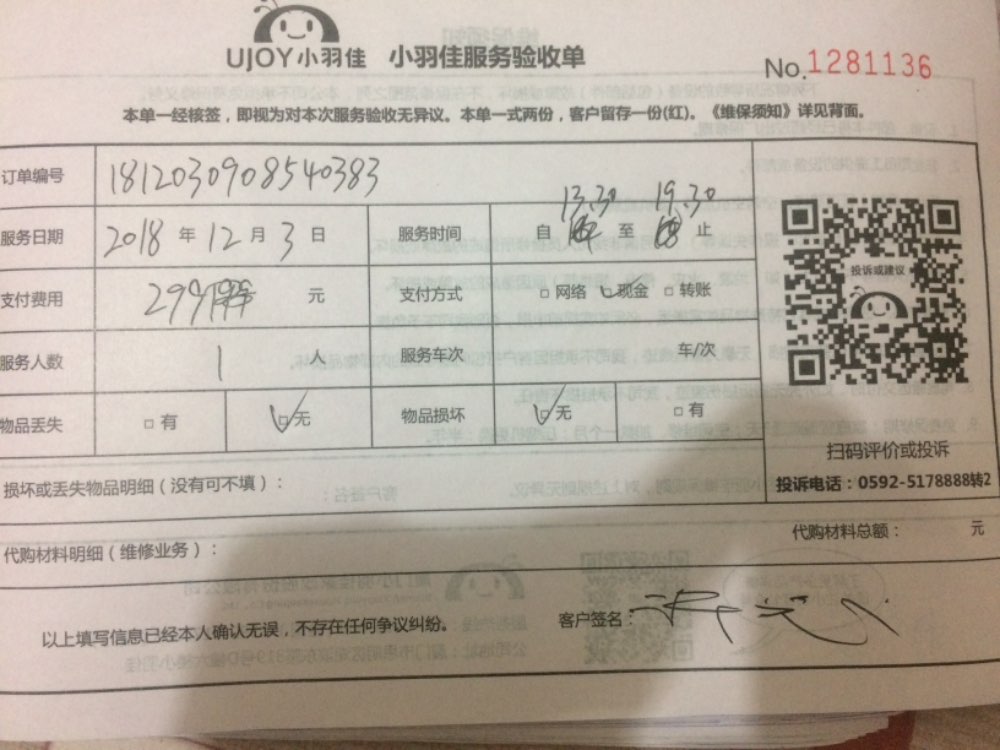 UJOY小羽佳 小羽佳服务验收单
No.1281136
本单一经核签，即视为对本次服务验收无异议。本单一式两份，客户留存一份(红)。《维保须知》详见背面。
订单编号 1812030908540383
服务日期 2018 年 12 月 3 日 服务时间 自 13.30 至 19.30 止
支付费用 299 元 支付方式 □ 网络 □ 现金 □ 转账
服务人数 1 人 服务车次 车/次
物品丢失 □ 有 □ 无 物品损坏 □ 无 □ 有
投诉或建议
扫码评价或投诉
投诉电话：0592-5178888转2
损坏或丢失物品明细（没有可不填）：
代购材料明细（维修业务）： 代购材料总额： 元
以上填写信息已经本人确认无误，不存在任何争议纠纷。 客户签名：